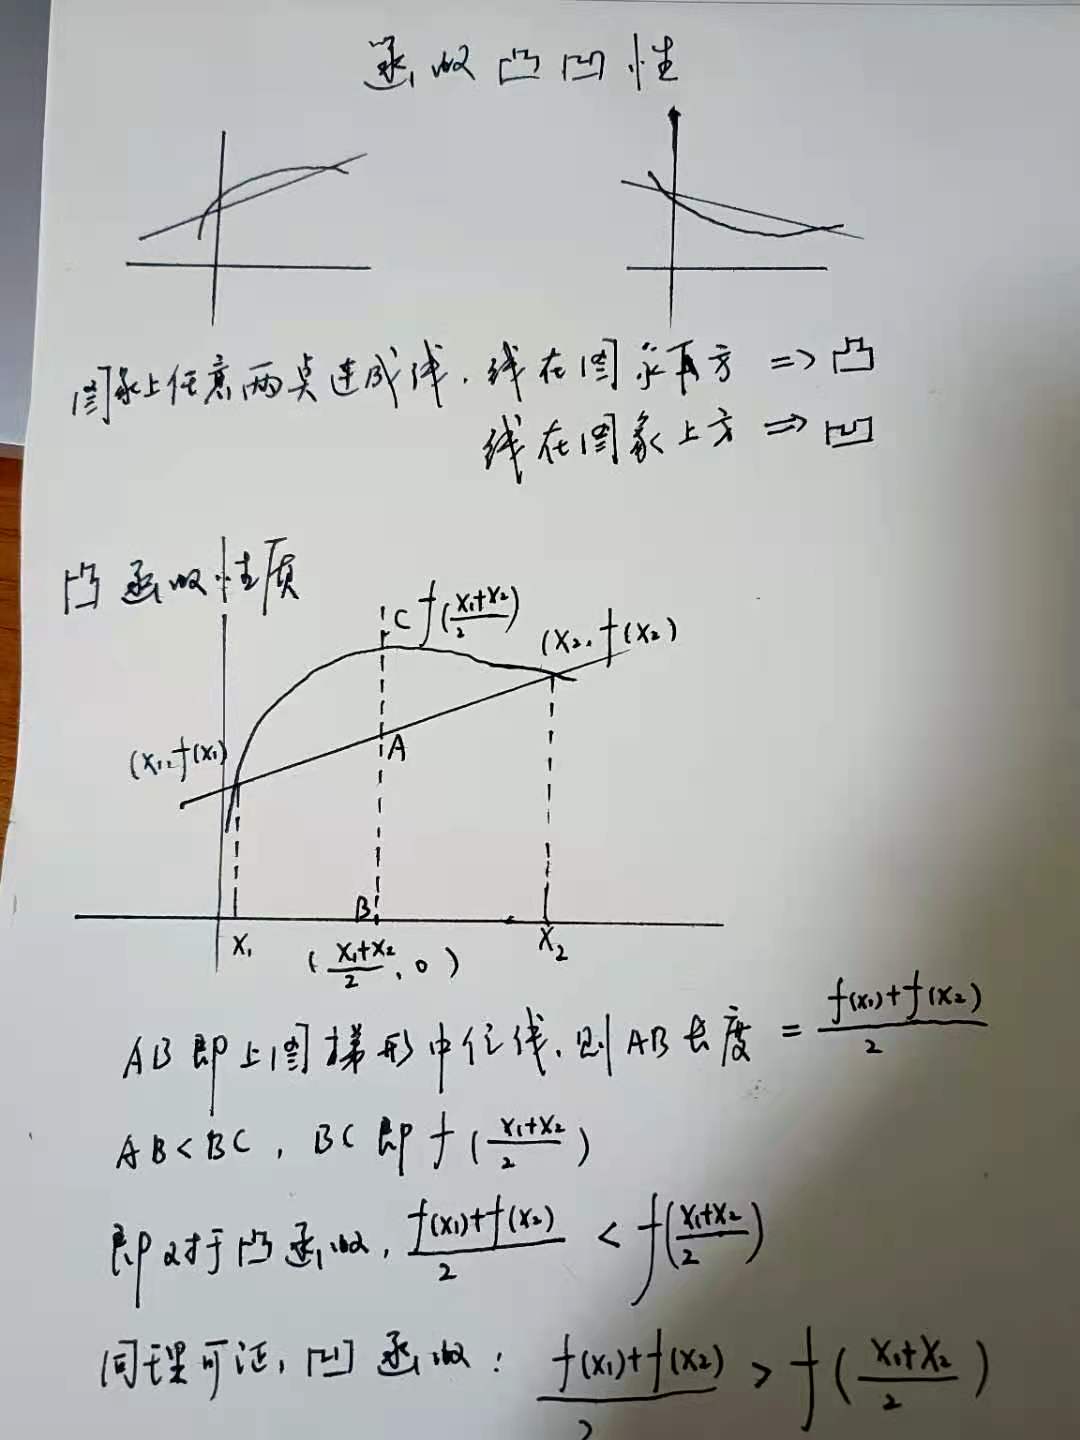 函数凸凹性
图象上任意两点连成线，线在图象下方 => 凸
线在图象上方 => 凹
凸函数性质
C f(\frac{x₁+x₂}{2})
(x₂, f(x₂)
(x₁, f(x₁)
A
B
x₁
(\frac{x₁+x₂}{2}, 0)
x₂
AB即上图梯形中位线，则AB长度 = \frac{f(x₁)+f(x₂)}{2}
AB<BC，BC即f(\frac{x₁+x₂}{2})
即对于凸函数，\frac{f(x₁)+f(x₂)}{2} < f(\frac{x₁+x₂}{2})
同理可证，凹函数：\frac{f(x₁)+f(x₂)}{2} > f(\frac{x₁+x₂}{2})